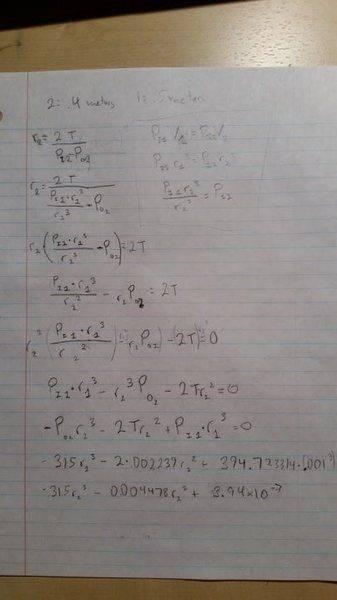 2: .4 meters 1: .5 meters
r₂ = 2T / P_I2 P_O2
P_I1 V₁ = P_I2 V₂
P_I1 r₁³ = P_I2 r₂³
r₂ = 2T / (P_I1 · r₁³ / r₂³ - P_O2)
P_I1 r₁³ / r₂³ = P_I2
r₂ · (P_I1 · r₁³ / r₂³ - P_O2) = 2T
P_I1 · r₁³ / r₂² - r₂ P_O2 = 2T
r₂² (P_I1 · r₁³ / r₂²) - (r₂ P_O2) - (2T) = 0
P_I1 · r₁³ - r₂³ P_O2 - 2T r₂² = 0
-P_O2 r₂³ - 2T r₂² + P_I1 · r₁³ = 0
-315 r₂³ - 2 · .002239 r₂² + 394.723314 · (.001³)
-315 r₂³ - 0.004478 r₂² + 3.94 × 10⁻⁷